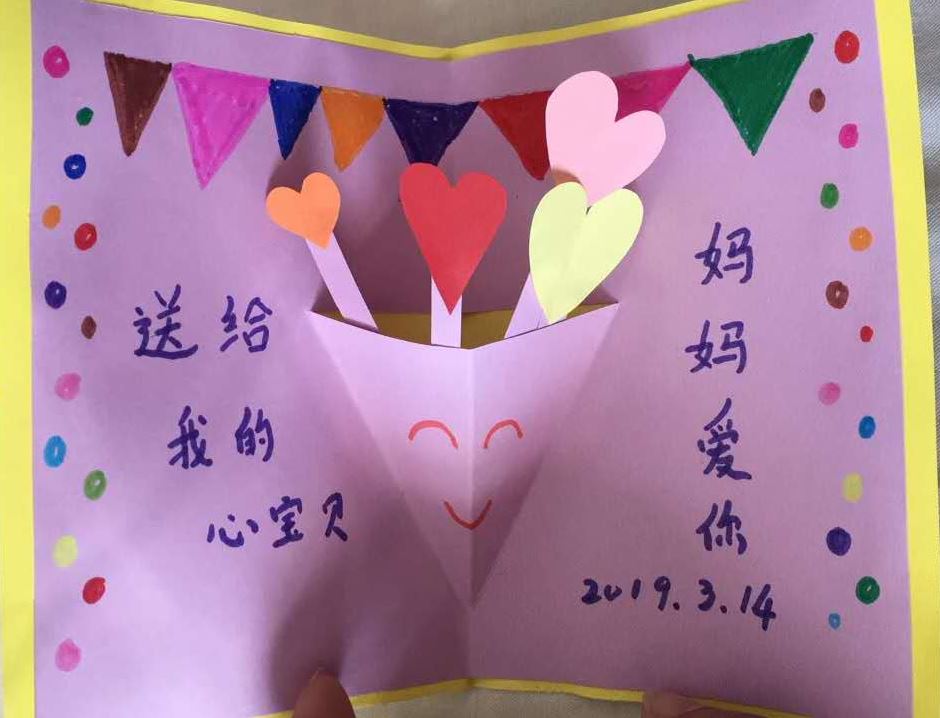 送给
我的
心宝贝
妈
妈
爱
你
2019.3.14